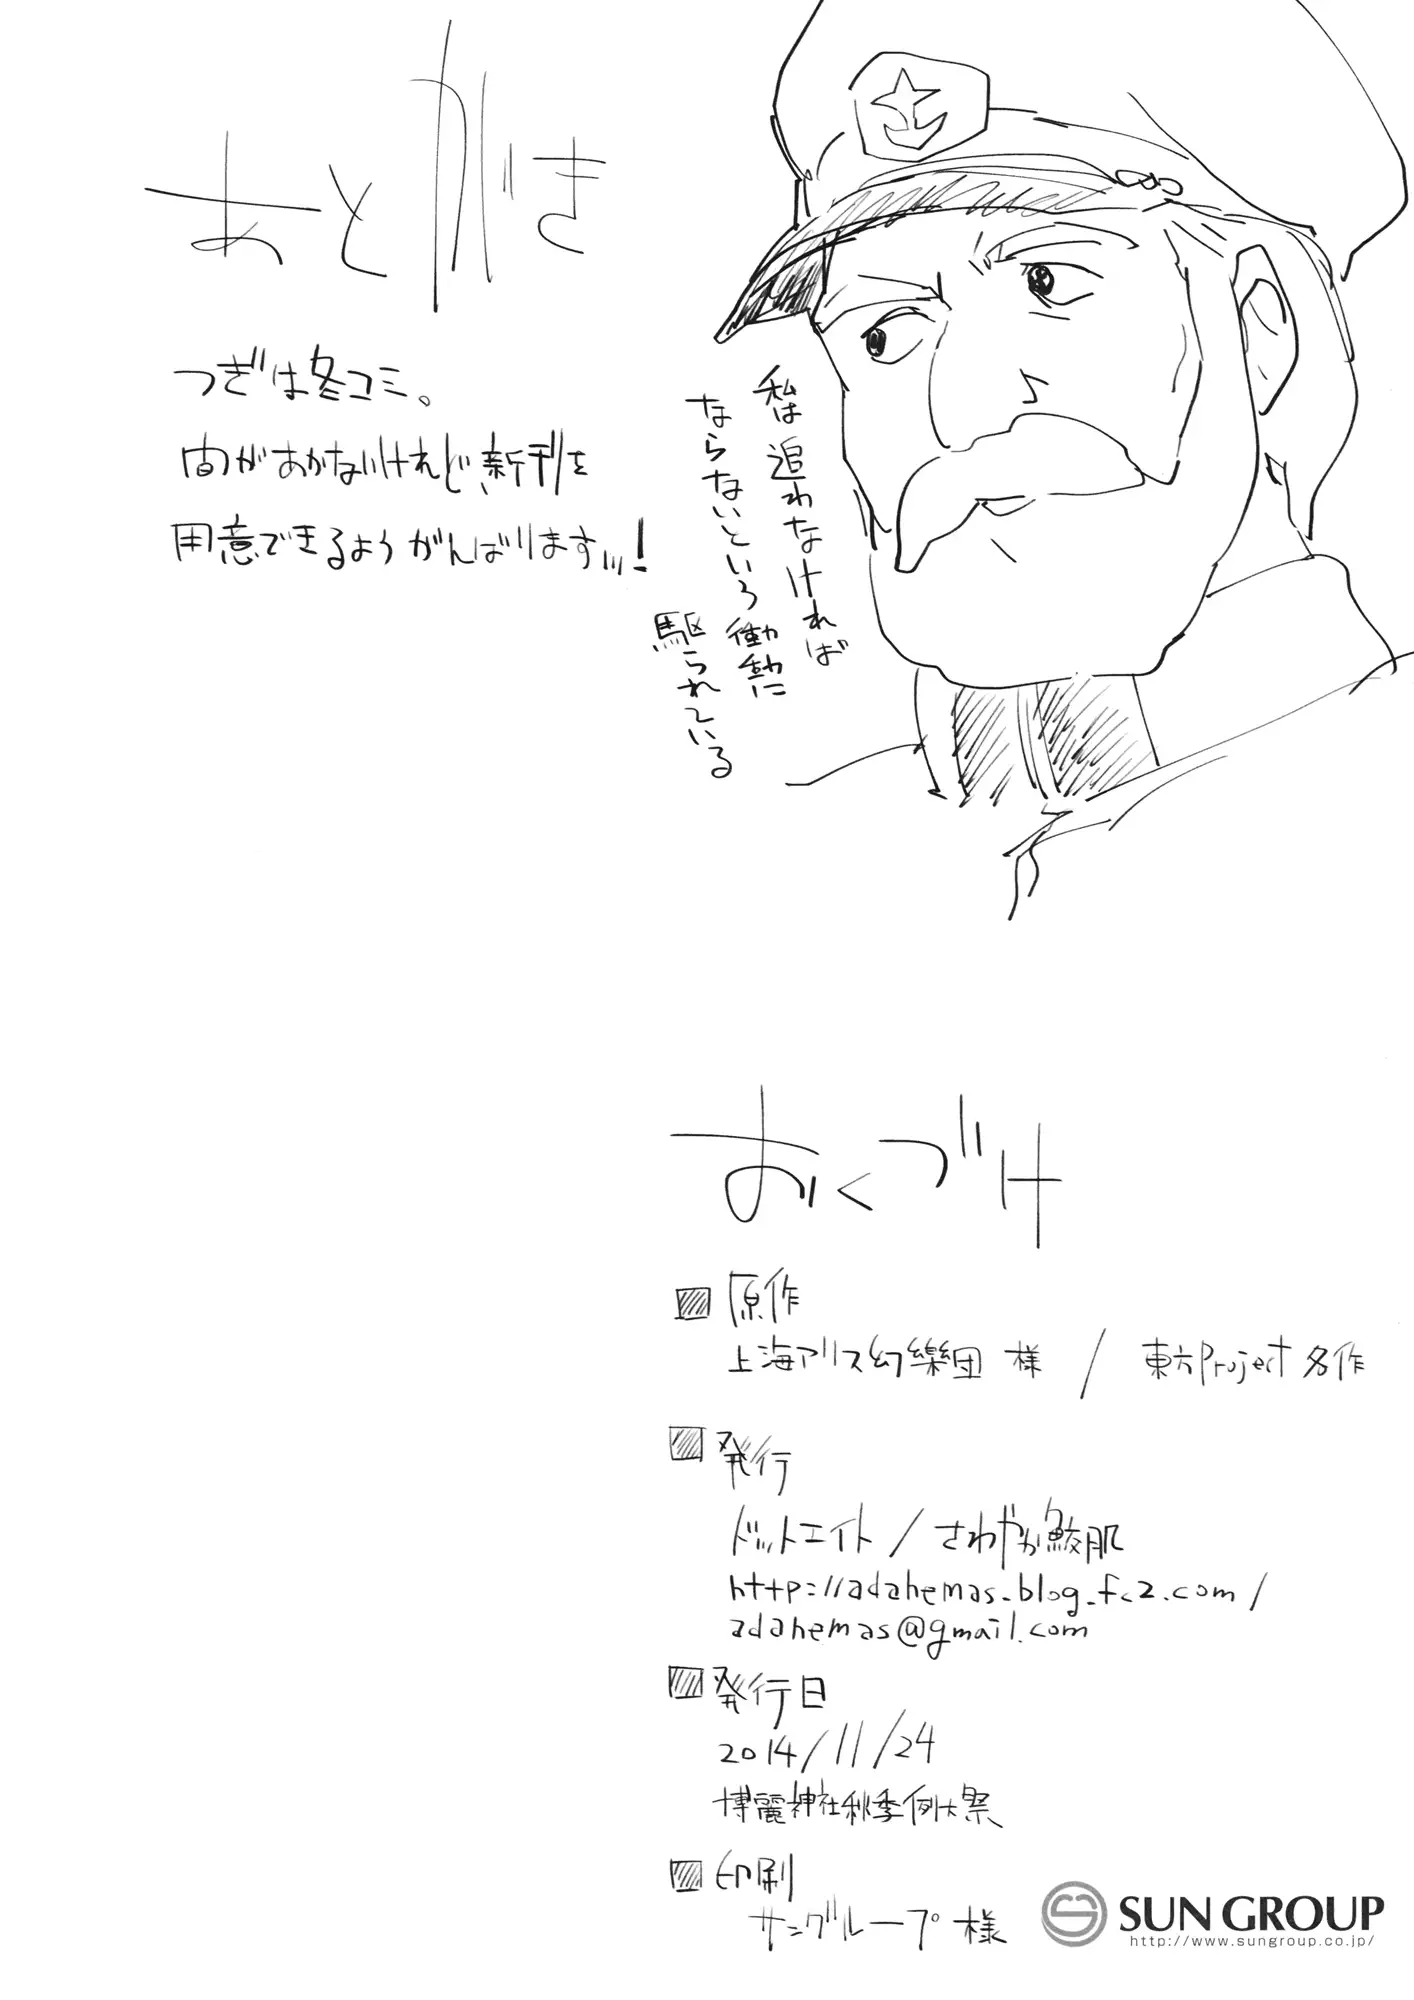 あとがき
つぎは冬コミ。
間があかないけれど新刊を
用意できるようがんばりますッ!
私は追わなければ
ならないという衝動に
駆られている
おくづけ
■原作
上海アリス幻樂団 様 / 東方Project各作
■発行
ドットエイト / さわやか鮫肌
http://adahemas.blog.fc2.com/
adahemas@gmail.com
■発行日
2014/11/24
博麗神社秋季例大祭
■印刷
サングループ 様
SUN GROUP
http://www.sungroup.co.jp/